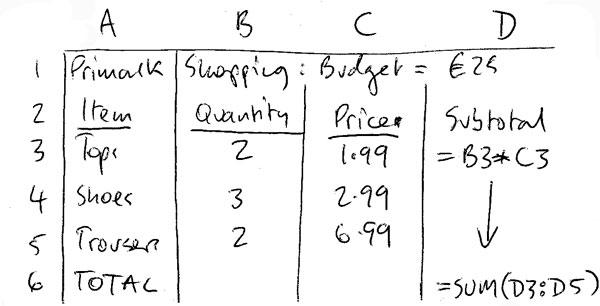 A B C D
1 Primark Shopping: Budget = €25
2 Item Quantity Price Subtotal
3 Tops 2 1.99 =B3*C3
4 Shoes 3 2.99
5 Trousers 2 6.99
6 TOTAL =SUM(D3:D5)